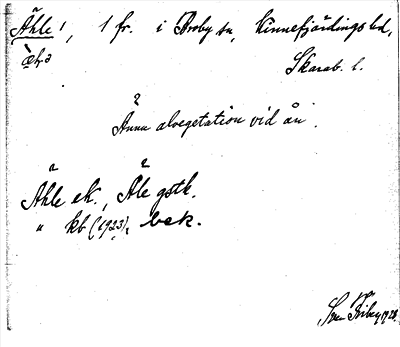 Ähle!, 1 fr. i Broby sn, Kinnefjärdings hd,
Skarab. l.
Ännu alvegetation vid ån.
Ähle ek., Äle gstk.
" kb (1923), bek.
Sven 1928.